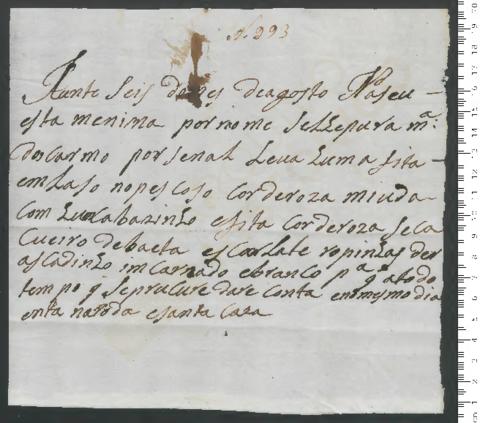 N. 293
Aunte seis do mes de agosto Naseu
esta menina por nome selle pura m.ª
do carmo por senal leva huma fita
em laso no pescoso cor de roza miuda
com hu cabazinho e fita cor de roza seca
Cueiro de baeta escarlate ropinhas der
ascadinho imcarnado e branco p.ª q atodo
tempo q se pracure dare conta eno mesmo dia
enta na roda e santa caza